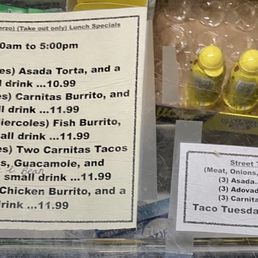 (Take out only) Lunch Specials
0am to 5:00pm
es) Asada Torta, and a
ll drink ...10.99
es) Carnitas Burrito, and
small drink ...11.99
iercoles) Fish Burrito,
all drink ...11.99
s) Two Carnitas Tacos
s, Guacamole, and
small drink ...11.99
Chicken Burrito, and a
drink ...11.99
Street
(Meat, Onions,
(3) Asada.
(3) Adovad
(3) Carnita
Taco Tuesda